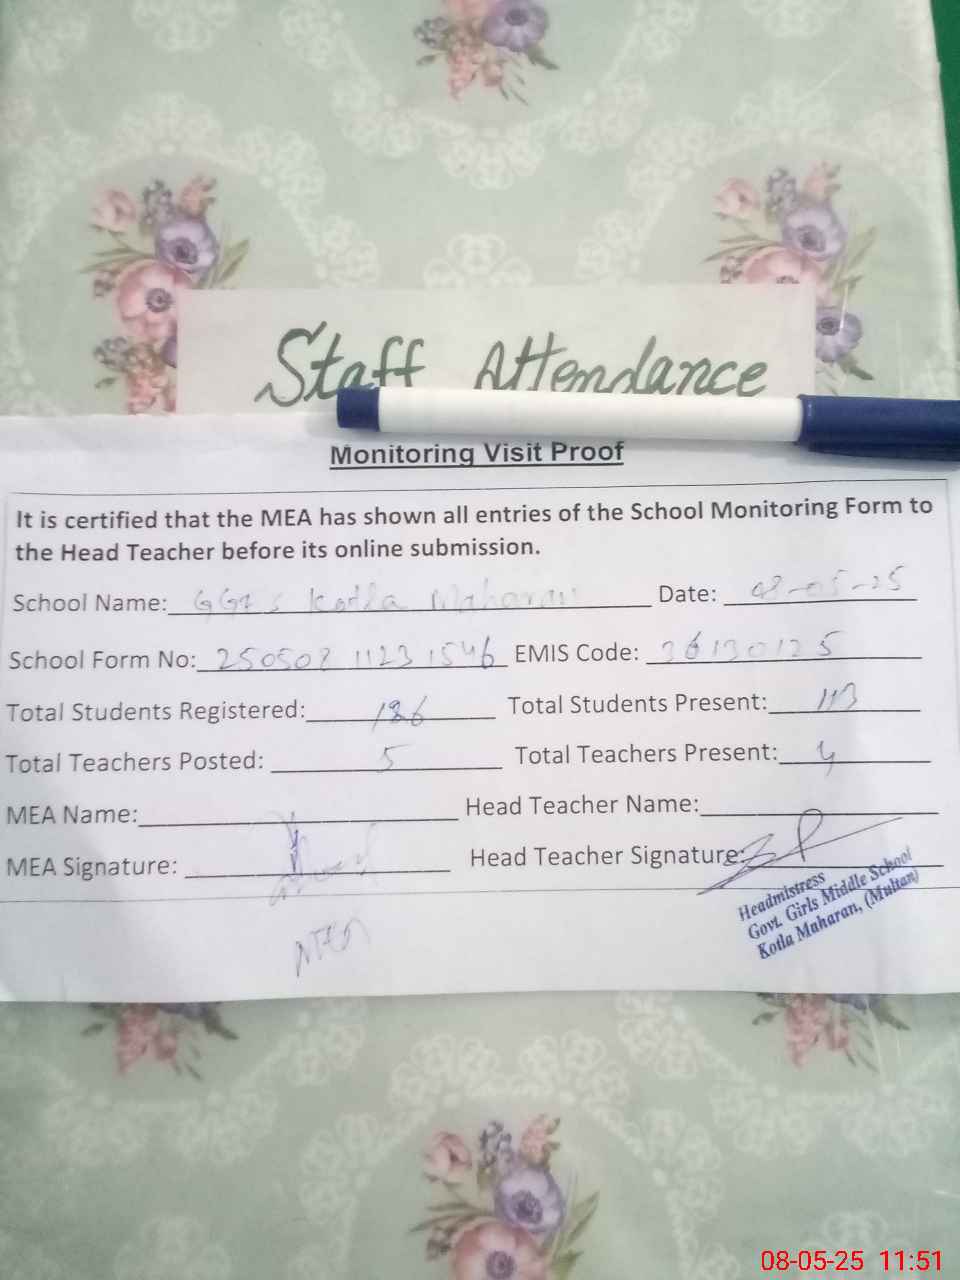 Staff Attendance
Monitoring Visit Proof
It is certified that the MEA has shown all entries of the School Monitoring Form to
the Head Teacher before its online submission.
School Name: Kotla Maharan Date: 08-05-25
School Form No: 250508 1123 1546 EMIS Code: 36130125
Total Students Registered: Total Students Present: 113
Total Teachers Posted: 5 Total Teachers Present: 4
MEA Name: Head Teacher Name:
MEA Signature: Head Teacher Signature:
Headmistress
Govt. Girls Middle School
Kotla Maharan, (Multan)
MEA
08-05-25 11:51